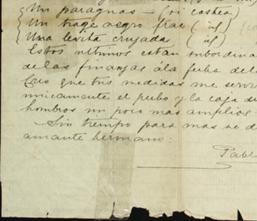 Un paraguas — (si castea
Un traje negro frac (id)
Una levita cruzada (id)
Estos ultimos estan subordina
de las finanzas á la fecha del
Creo que tus medidas me serv
unicamente el puño y la caja de
hombros un poco mas amplios
Sin tiempo para mas se d
amante hermano:
Pabl